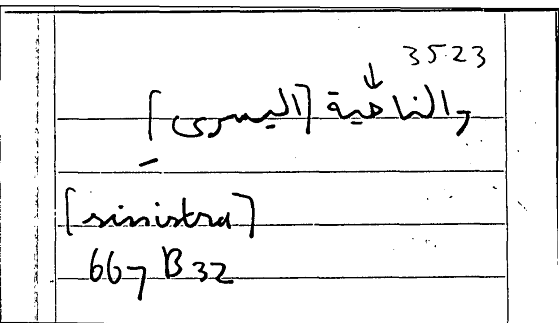 3523
↓
والناحية [اليسرى]
[sinistra]
667 B 32